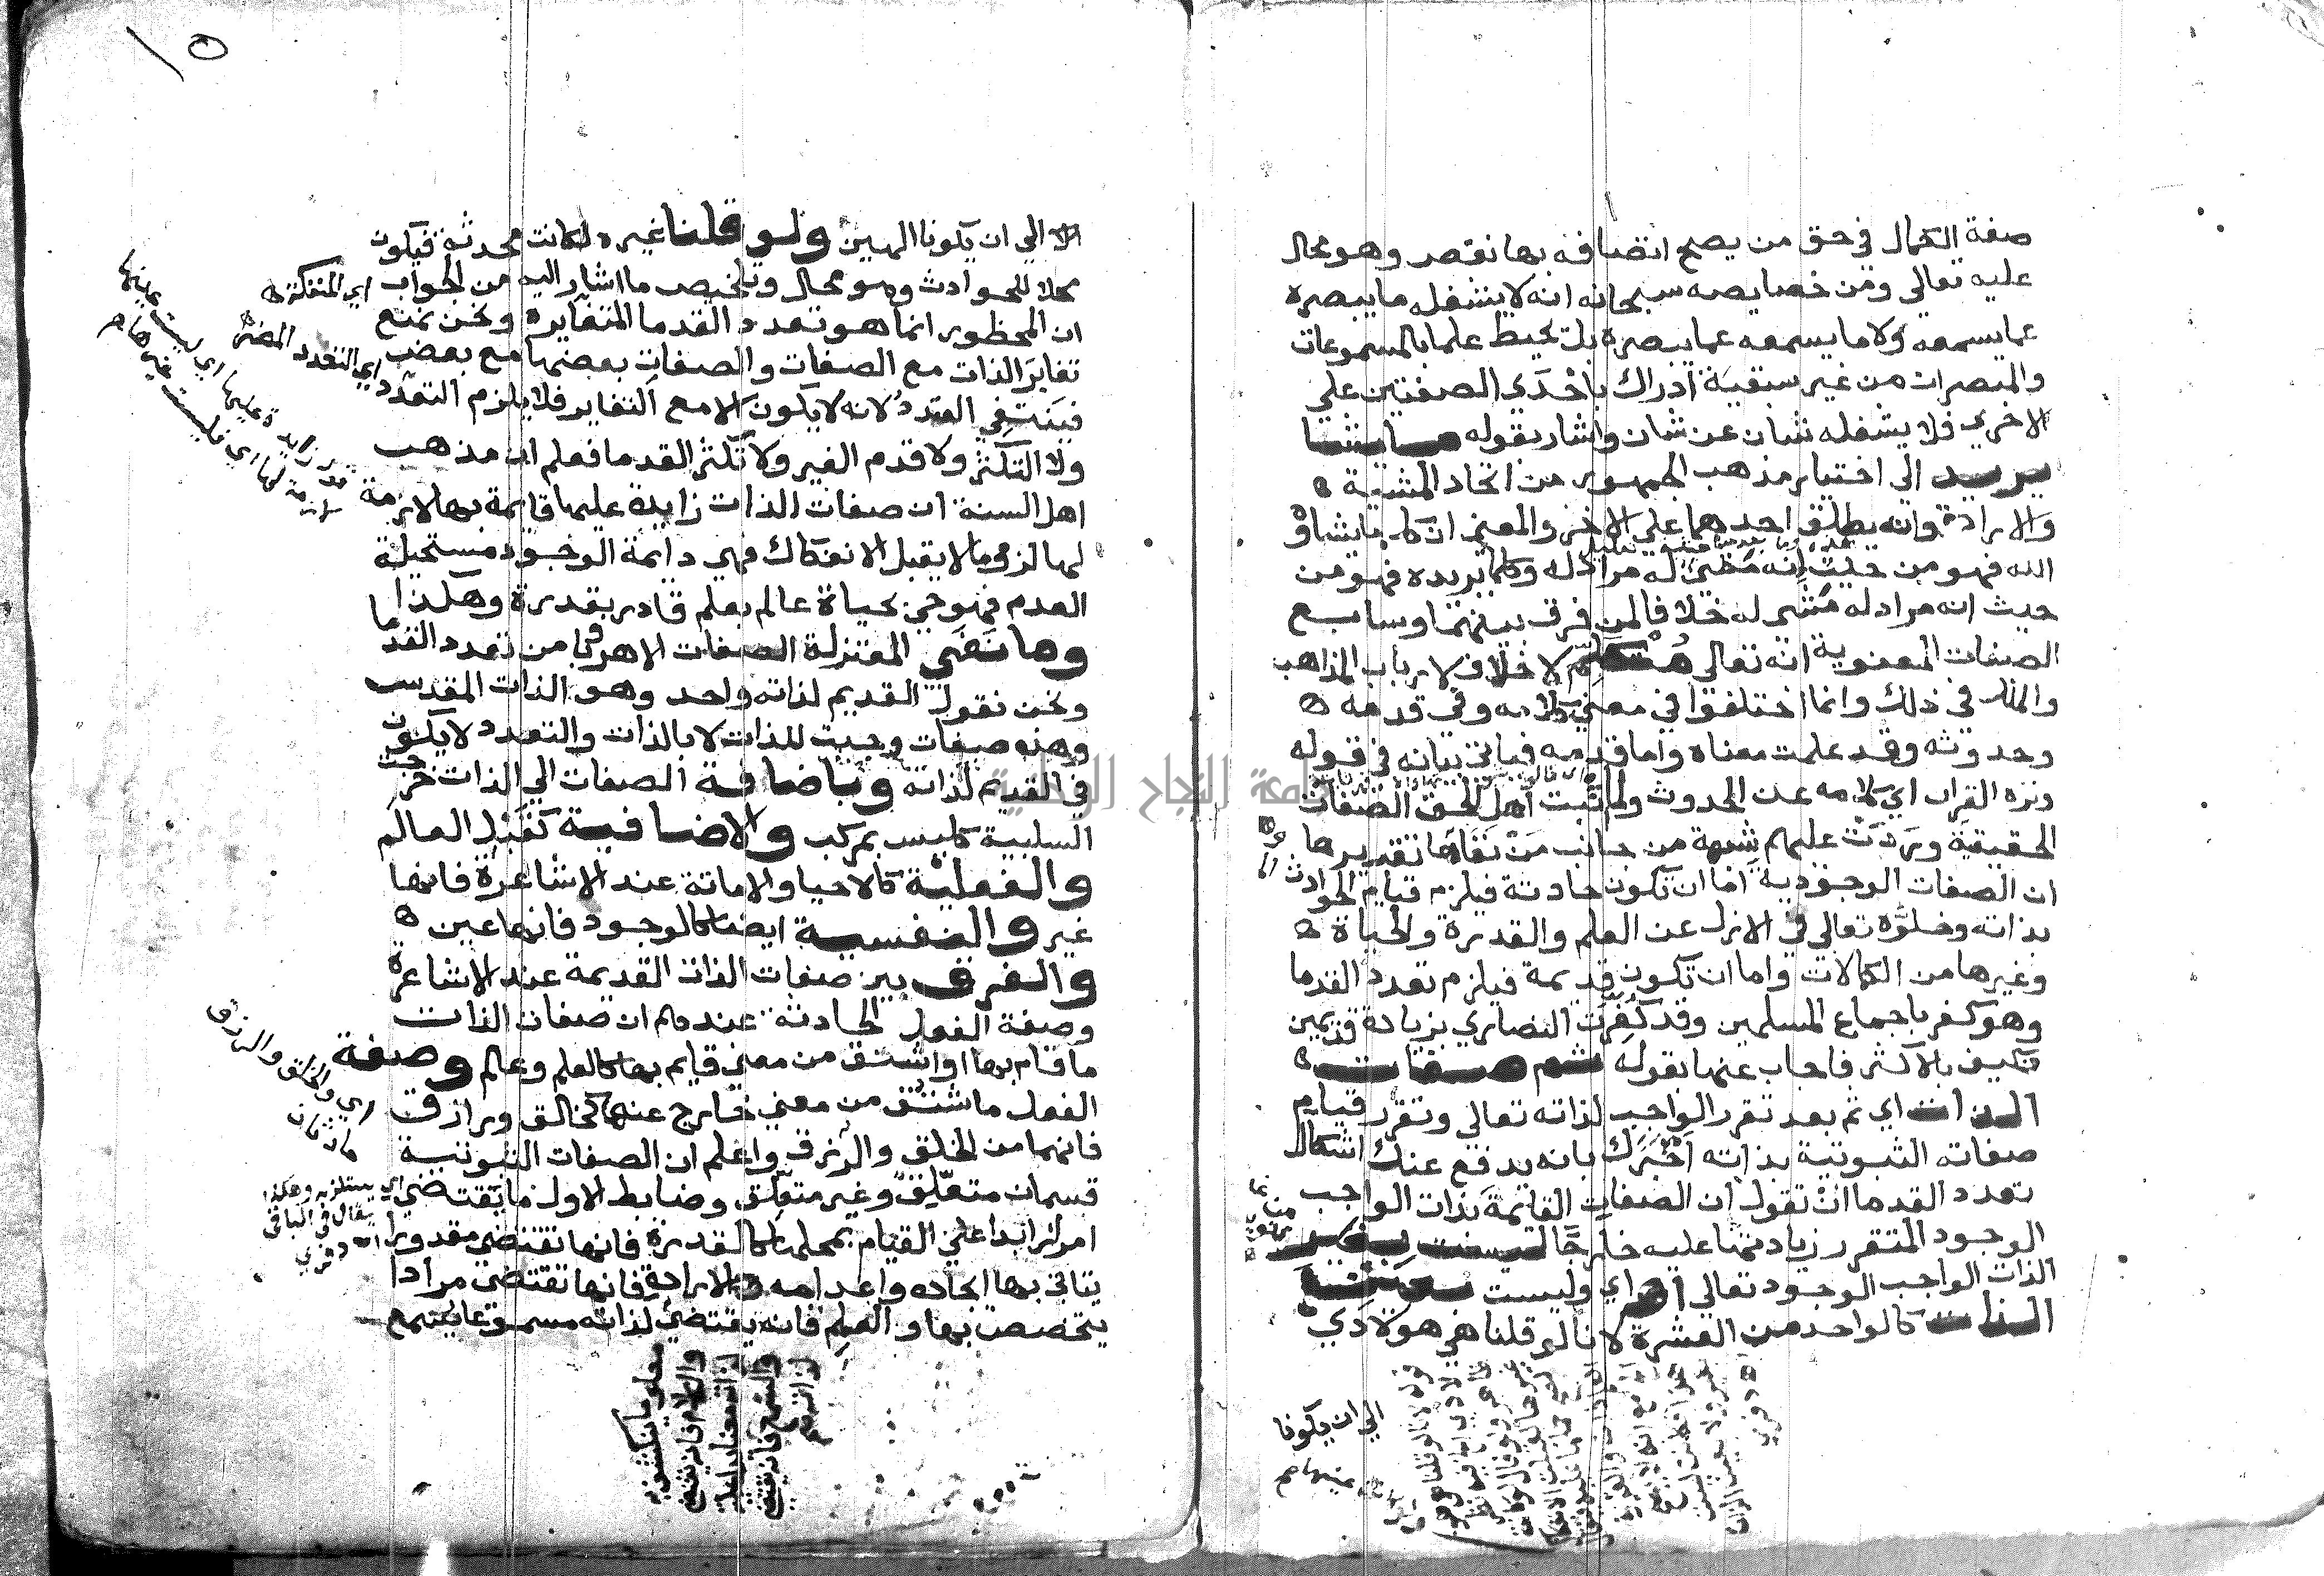 صفة الكمال في حق من يصح اتصافه بها نقص وهو محال
عليه تعالي ومن خصايصه سبحانه انه لا يشغله ما يبصره
عما يسمعه ولا ما يسمعه عما يبصره بل يحيط علما بالمسموعات
والمبصرات من غير سبقية ادراك باحدي الصفتين علي
الاخري فلا يشغله شان عن شان واشار بقوله ما يشا
يريد الي اختيار مذهب الجمهور من اتحاد المشية
والارادة وانه يطلق احدهما علي الاخر والمعني ان كل ما يشاؤ
الله فهو من حيث انه مشيء له مراد له وكلما يريده فهو من
حيث انه مراد له مشيء له خلافا لمن فرق بينهما وسابع
الصفات المعنوية انه تعالي متكلم لا خلاف لارباب المذاهب
والملل في ذلك وانما اختلفوا في معني كلامه وفي قدمه
وحدوثه وقد علمت معناه واما قدمه فياتي بيانه في قوله
ونزه القران اي كلامه عن الحدوث ولما اثبت اهل الحق الصفات
الحقيقية وردت عليهم شبهة من جانب من نفاها تقديرها
ان الصفات الوجودية اما ان تكون حادثة فيلزم قيام الحوادث
بذاته وخلوه تعالي في الازل عن العلم والقدرة والحياة
وغيرها من الكمالات واما ان تكون قديمة فيلزم تعدد القدما
وهو كفر باجماع المسلمين وقد كفرت النصاري بزيادة قديمين
فكيف بالاكثر فاجاب عنها بقوله ثم صفات
الذات اي ثم بعد تقرر الواجب لذاته تعالي وتقرر قيام
صفاته الثبوتية بذاته اخبرك بانه يدفع عنك اشكال
تعدد القدما ان تقول ان الصفات القايمة بذات الواجب
الوجود المتقرر زيادتها عليه خارجا ليست بغير
الذات الواجب الوجود تعالي اهـ اي وليست بعين
الذات كالواحد من العشرة لانا لو قلنا هي هو لادي
الي ان يكونا
الي ان يكونا الهين ولو قلنا غيره لكانت محدثة فيكون
محلا للحوادث وهو محال وتلخيص ما اشار اليه من الجواب
ان المحظور انما هو تعدد القدما المتغايرة ونحن نمنع
تغاير الذات مع الصفات والصفات بعضها مع بعض
فينتفي التعدد لانه لا يكون الا مع التغاير فلا يلزم التعدد
ولا التكثر ولا قدم الغير ولا تكثر القدما فعلم ان مذهب
اهل السنة ان صفات الذات زايدة عليها قايمة بها لازمة
لها لزوما لا يقبل الانفكاك فهي دايمة الوجود مستحيلة
العدم فهو حي بحياة عالم بعلم قادر بقدرة وهكذا
وما نفي المعتزلة الصفات الا هروبا من تعدد القدما
ونحن نقول القديم لذاته واحد وهو الذات المقدس
وهذه صفات وجبت للذات لا بالذات والتعدد لا يكون
في القديم لذاته وباضافة الصفات الي الذات خرجت
السلبية كليس بمركب والاضافية كقبل العالم
والفعلية كالاحيا والاماتة عند الاشاعرة فانها
غير والنفسية ايضا كالوجود فانها عين
والفرق بين صفات الذات القديمة عند الاشاعرة
وصفة الفعل الحادثة عندهم ان صفات الذات
ما قام بها او اشتق من معني قايم بها كالعلم وعالم وصفة
الفعل ما اشتق من معني خارج عنها كخالق ورازق
فانهما من الخلق والرزق واعلم ان الصفات الثبوتية
قسمان متعلق وغير متعلق وضابط الاول ما يقتضي
امرا زايدا علي القيام بمحلها كالقدرة فانها تقتضي مقدورا
يتاتي بها ايجاده واعدامه والارادة فانها تقتضي مرادا
يتخصص بها والعلم فانه يقتضي لذاته مسموعا يسمع
اي المنفكة
اي التعدد المضر
اي والخلق والرزق
حادثان
اي يستلزم وهكذا
يقال في الباقي
معلوما ينكشف